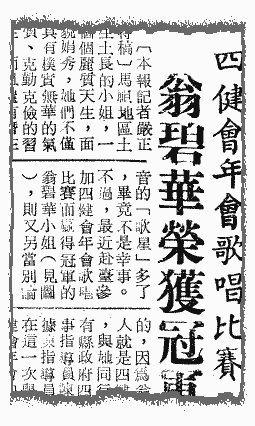 四健會年會歌唱比賽
翁碧華榮獲冠軍
〔本報記者嚴正
特稿〕馬祖地區土
生土長的小姐,一
個個麗質天生,面
貌娟秀,她們不僅
具有樸質無華的氣
質、克勤克儉的習
音的「歌星」多了
,畢竟不是幸事。
不過,最近赴臺參
加四健會年會歌唱
比賽而贏得冠軍的
翁碧華小姐(見圖
),則又另當別論
的,因為翁
人就是四健
,與她同行
有縣政府四
事指導員
據 指導員
在這一次